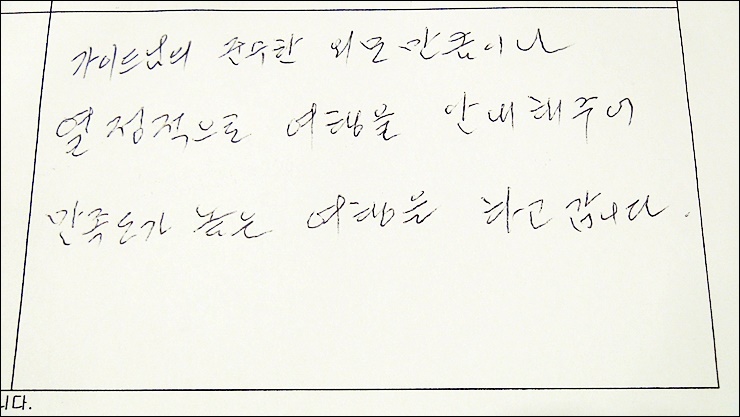 가이드님의 준수한 외모만큼이나
열정적으로 여행을 안내해주어
만족도가 높은 여행을 하고 갑니다.
니다.